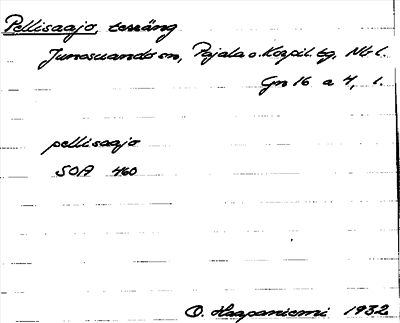 Pellisaajo, terräng
Junosuando sn, Pajala o. Korpil. tg, Nb l.
Gn 16 a 4, 1.
pellisaajo
SOA 460
O. Haapaniemi 1932